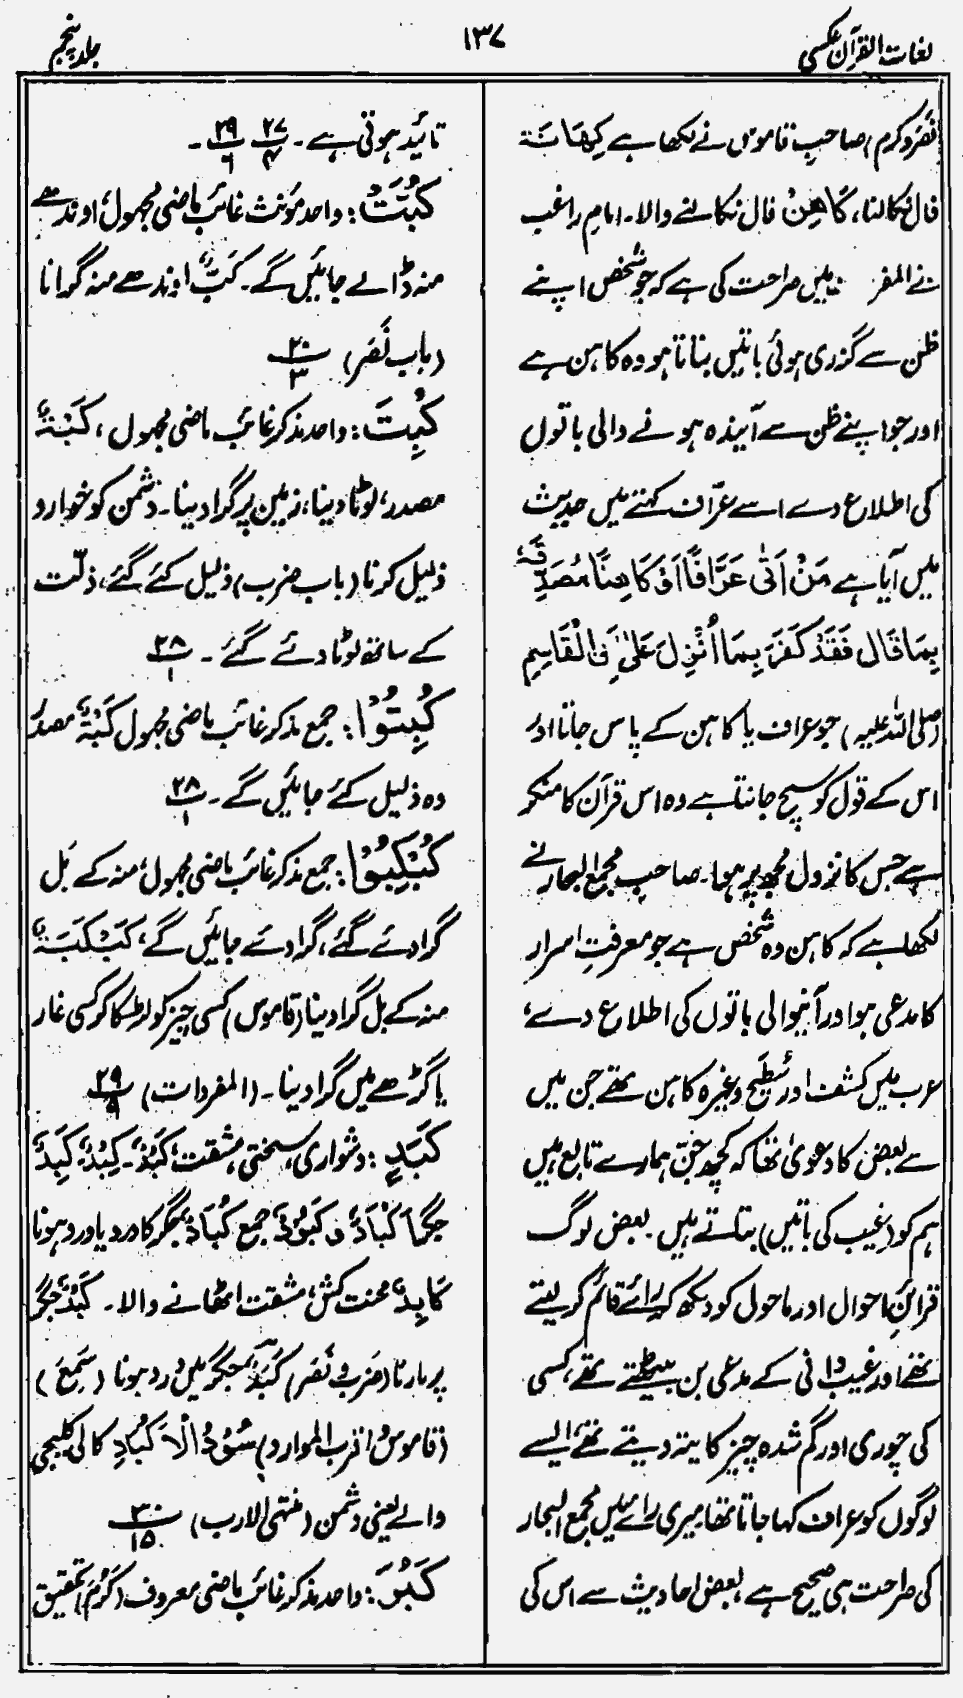 لغات القرآن عکسی
۱۳۷
جلد پنجم
نَصَرَ و کرم) صاحبِ قاموس نے لکھا ہے کِھَانَۃ
فال نکالنا، کَاھِنْ فال نکالنے والا۔ امام راغب
نے المفر میں صراحت کی ہے کہ جو شخص اپنے
ظن سے گزری ہوئی باتیں بتاتا ہو وہ کاہن ہے
اور جو اپنے ظن سے آیندہ ہونے والی باتوں
کی اطلاع دے اسے عرّاف کہتے ہیں حدیث
میں آیا ہے مَنْ اَتٰی عَرَّافًا اَوْ کَاھِنًا فَصَدَّقَہٗ
بِمَا قَالَ فَقَدْ کَفَرَ بِمَا اُنْزِلَ عَلٰی اَبِی الْقَاسِمِ
(صلی اللہ علیہ) جو عراف یا کاہن کے پاس جاتا اور
اس کے قول کو سچ جانتا ہے وہ اس قرآن کا منکر
ہے جس کا نزول مجھ پر ہوا۔ صاحبِ مجمع البحار نے
لکھا ہے کہ کاہن وہ شخص ہے جو معرفتِ اسرار
کا مدعی ہو اور آنیوالی باتوں کی اطلاع دے،
عرب میں کشف اور سَطِیح وغیرہ کاہن تھے جن میں
سے بعض کا دعویٰ تھا کہ کچھ جنّ ہمارے تابع ہیں
ہم کو (غیب کی باتیں) بتاتے ہیں۔ بعض لوگ
قرائنِ احوال اور ماحول کو دیکھ کر رائے قائم کر لیتے
تھے اور غیب دانی کے مدعی بن بیٹھتے تھے، کسی
کی چوری اور گم شدہ چیز کا پتہ دیتے تھے، ایسے
لوگوں کو عراف کہا جاتا تھا میری رائے میں مجمع البحار
کی صراحت ہی صحیح ہے، بعض احادیث سے اس کی
تائید ہوتی ہے۔ ۲۷/۴ ۲۹/۶ ۔
کُبَّتْ: واحد مؤنث غائب ماضی مجہول، اوندھے
منہ ڈالے جائیں گے۔ کَبٌّ اوندھے منہ گرانا
(باب نَصَر) ۲۰/۳
کُبِتَ: واحد مذکر غائب ماضی مجہول، کَبْتٌ
مصدر، لوٹا دینا، زمین پر گرا دینا۔ دشمن کو خوار و
ذلیل کرنا (باب ضرب) ذلیل کئے گئے، ذلّت
کے ساتھ لوٹا دئے گئے۔ ۲۸/۱
کُبِتُوْا: جمع مذکر غائب ماضی مجہول کَبْتٌ مصدر
وہ ذلیل کئے جائیں گے۔ ۲۸/۱
کُبْکِبُوْا: جمع مذکر غائب ماضی مجہول، منہ کے بَل
گرا دئے گئے، گرا دئے جائیں گے، کَبْکَبَۃٌ
منہ کے بل گرا دینا (قاموس) کسی چیز کو لڑھکا کر کسی غار
یا گڑھے میں گرا دینا۔ (المفردات) ۲۹/۹
کَبَدٍ: دشواری، سختی، مشقت، کَبْدٌ۔ کِبْدٌ، کَبِدٌ
جگر، اَکْبَادٌ و کَبُوْدٌ جمع کُبَادٌ جگر کا درد یا درد ہونا
کَابِدٌ محنت کش، مشقت اٹھانے والا۔ کَبْدٌ جگر
پر مارنا (ضَرَبَ و نَصَرَ) کَبَدٌ جگر میں درد ہونا (سَمِعَ)
(قاموس، اقرب الموارد) سُوْدُ الْاَکْبَادِ کالی کلیجی
والے یعنی دشمن (منتہی الارب) ۳۰/۱۵
کَبُرَ: واحد مذکر غائب ماضی معروف (کَرُمَ) تحقیق